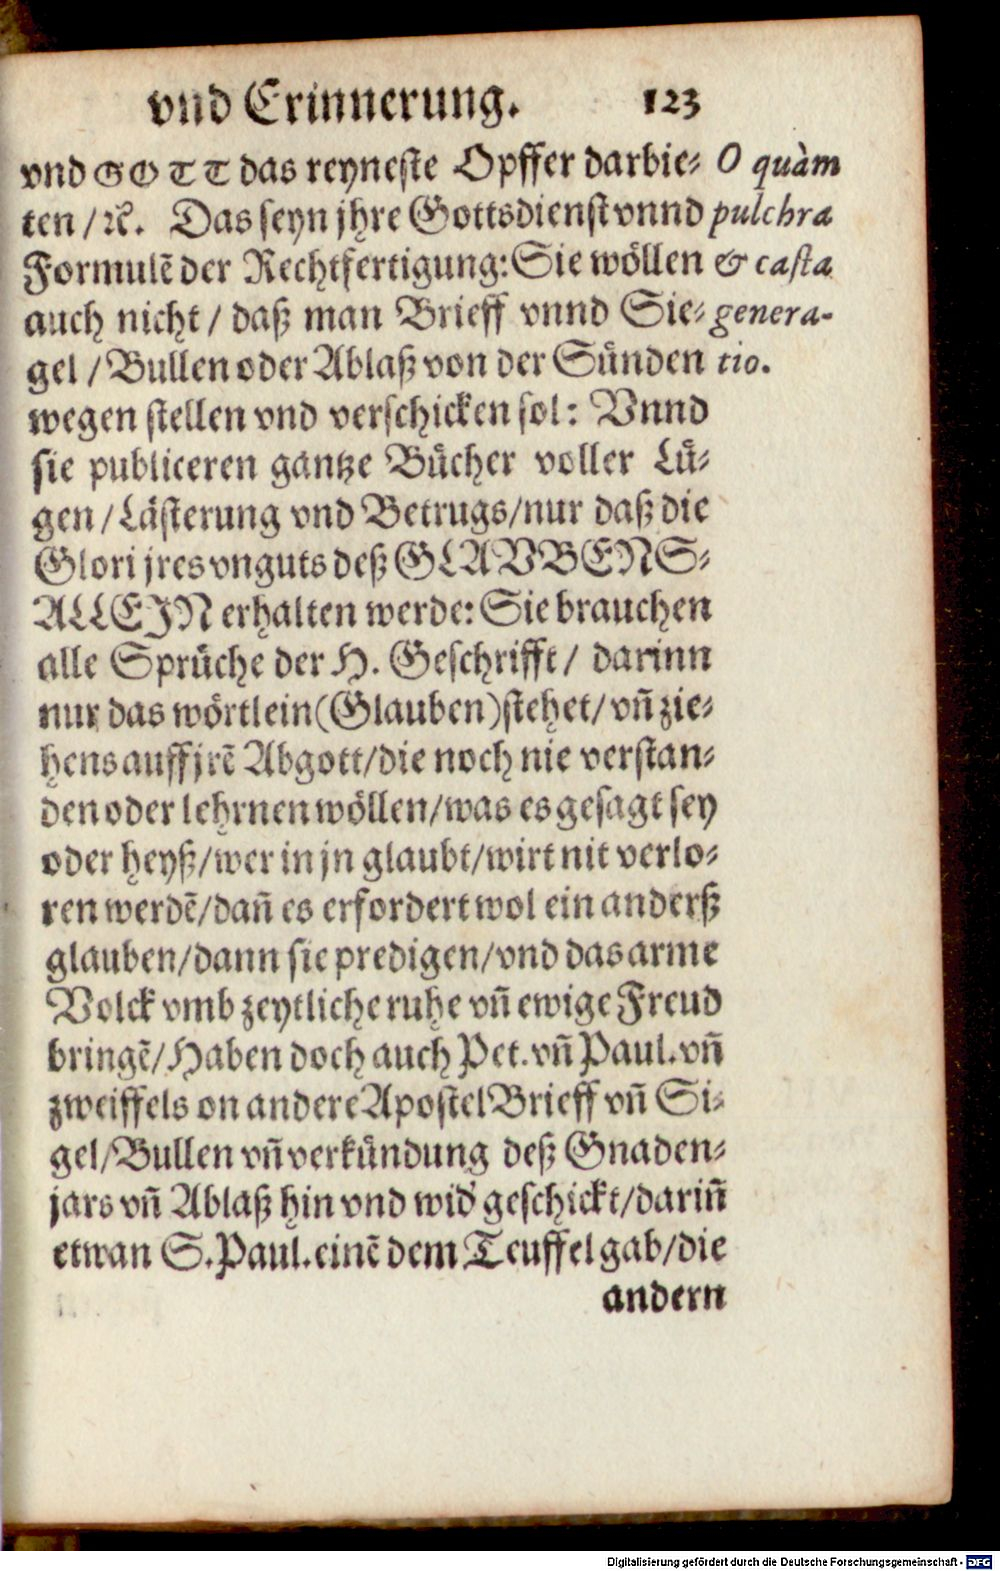 vnd Erinnerung. 123
vnd GOTT das reyneste Opffer darbie-
ten / ꝛc. Das seyn jhre Gottsdienst vnnd
Formulẽ der Rechtfertigung: Sie wöllen
auch nicht / daß man Brieff vnnd Sie-
gel / Bullen oder Ablaß von der Sünden
wegen stellen vnd verschicken sol: Vnnd
sie publiceren gantze Bücher voller Lü-
gen / Lästerung vnd Betrugs / nur daß die
Glori jres vnguts deß GLAVBENS-
ALLEIN erhalten werde: Sie brauchen
alle Sprüche der H. Geschrifft / darinn
nur das wörtlein (Glauben) stehet / vñ zie-
hens auff jrẽ Abgott / die noch nie verstan-
den oder lehrnen wöllen / was es gesagt sey
oder heyß / wer in jn glaubt / wirt nit verlo-
ren werdẽ / dañ es erfordert wol ein anderß
glauben / dann sie predigen / vnd das arme
Volck vmb zeytliche ruhe vñ ewige Freud
bringẽ / Haben doch auch Pet. vñ Paul. vñ
zweiffels on andere Apostel Brieff vñ Si-
gel / Bullen vñ verkündung deß Gnaden-
jars vñ Ablaß hin vnd wid' geschickt / dariñ
etwan S. Paul. einẽ dem Teuffel gab / die
andern
O quàm
pulchra
& casta
genera-
tio.
Digitalisierung gefördert durch die Deutsche Forschungsgemeinschaft - DFG